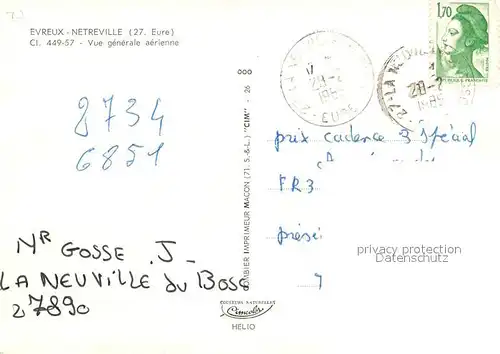 EVREUX - NETREVILLE (27. Eure)
Cl. 449-57 - Vue générale aérienne
8734
6851
Mr GOSSE .J-
LA NEUVILLE du BOSC
27890
COMBIER IMPRIMEUR MACON (71. S.-&-L.) "CIM" - 26
COULEURS NATURELLES
Cimcolor
HELIO
1,70
28-2
1985
EURE
27-LA NEUVIL
28-2
1985
prix cadence 3 spécial
FR3
privacy protection
Datenschutz